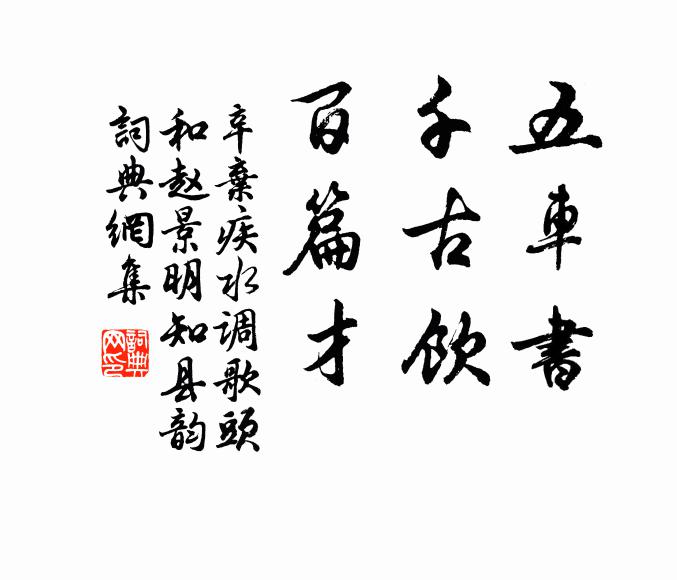 五車書
千古飲
百篇才
辛棄疾水调歌頭
和赵景明知县韵
詞典網集
詞典
网印